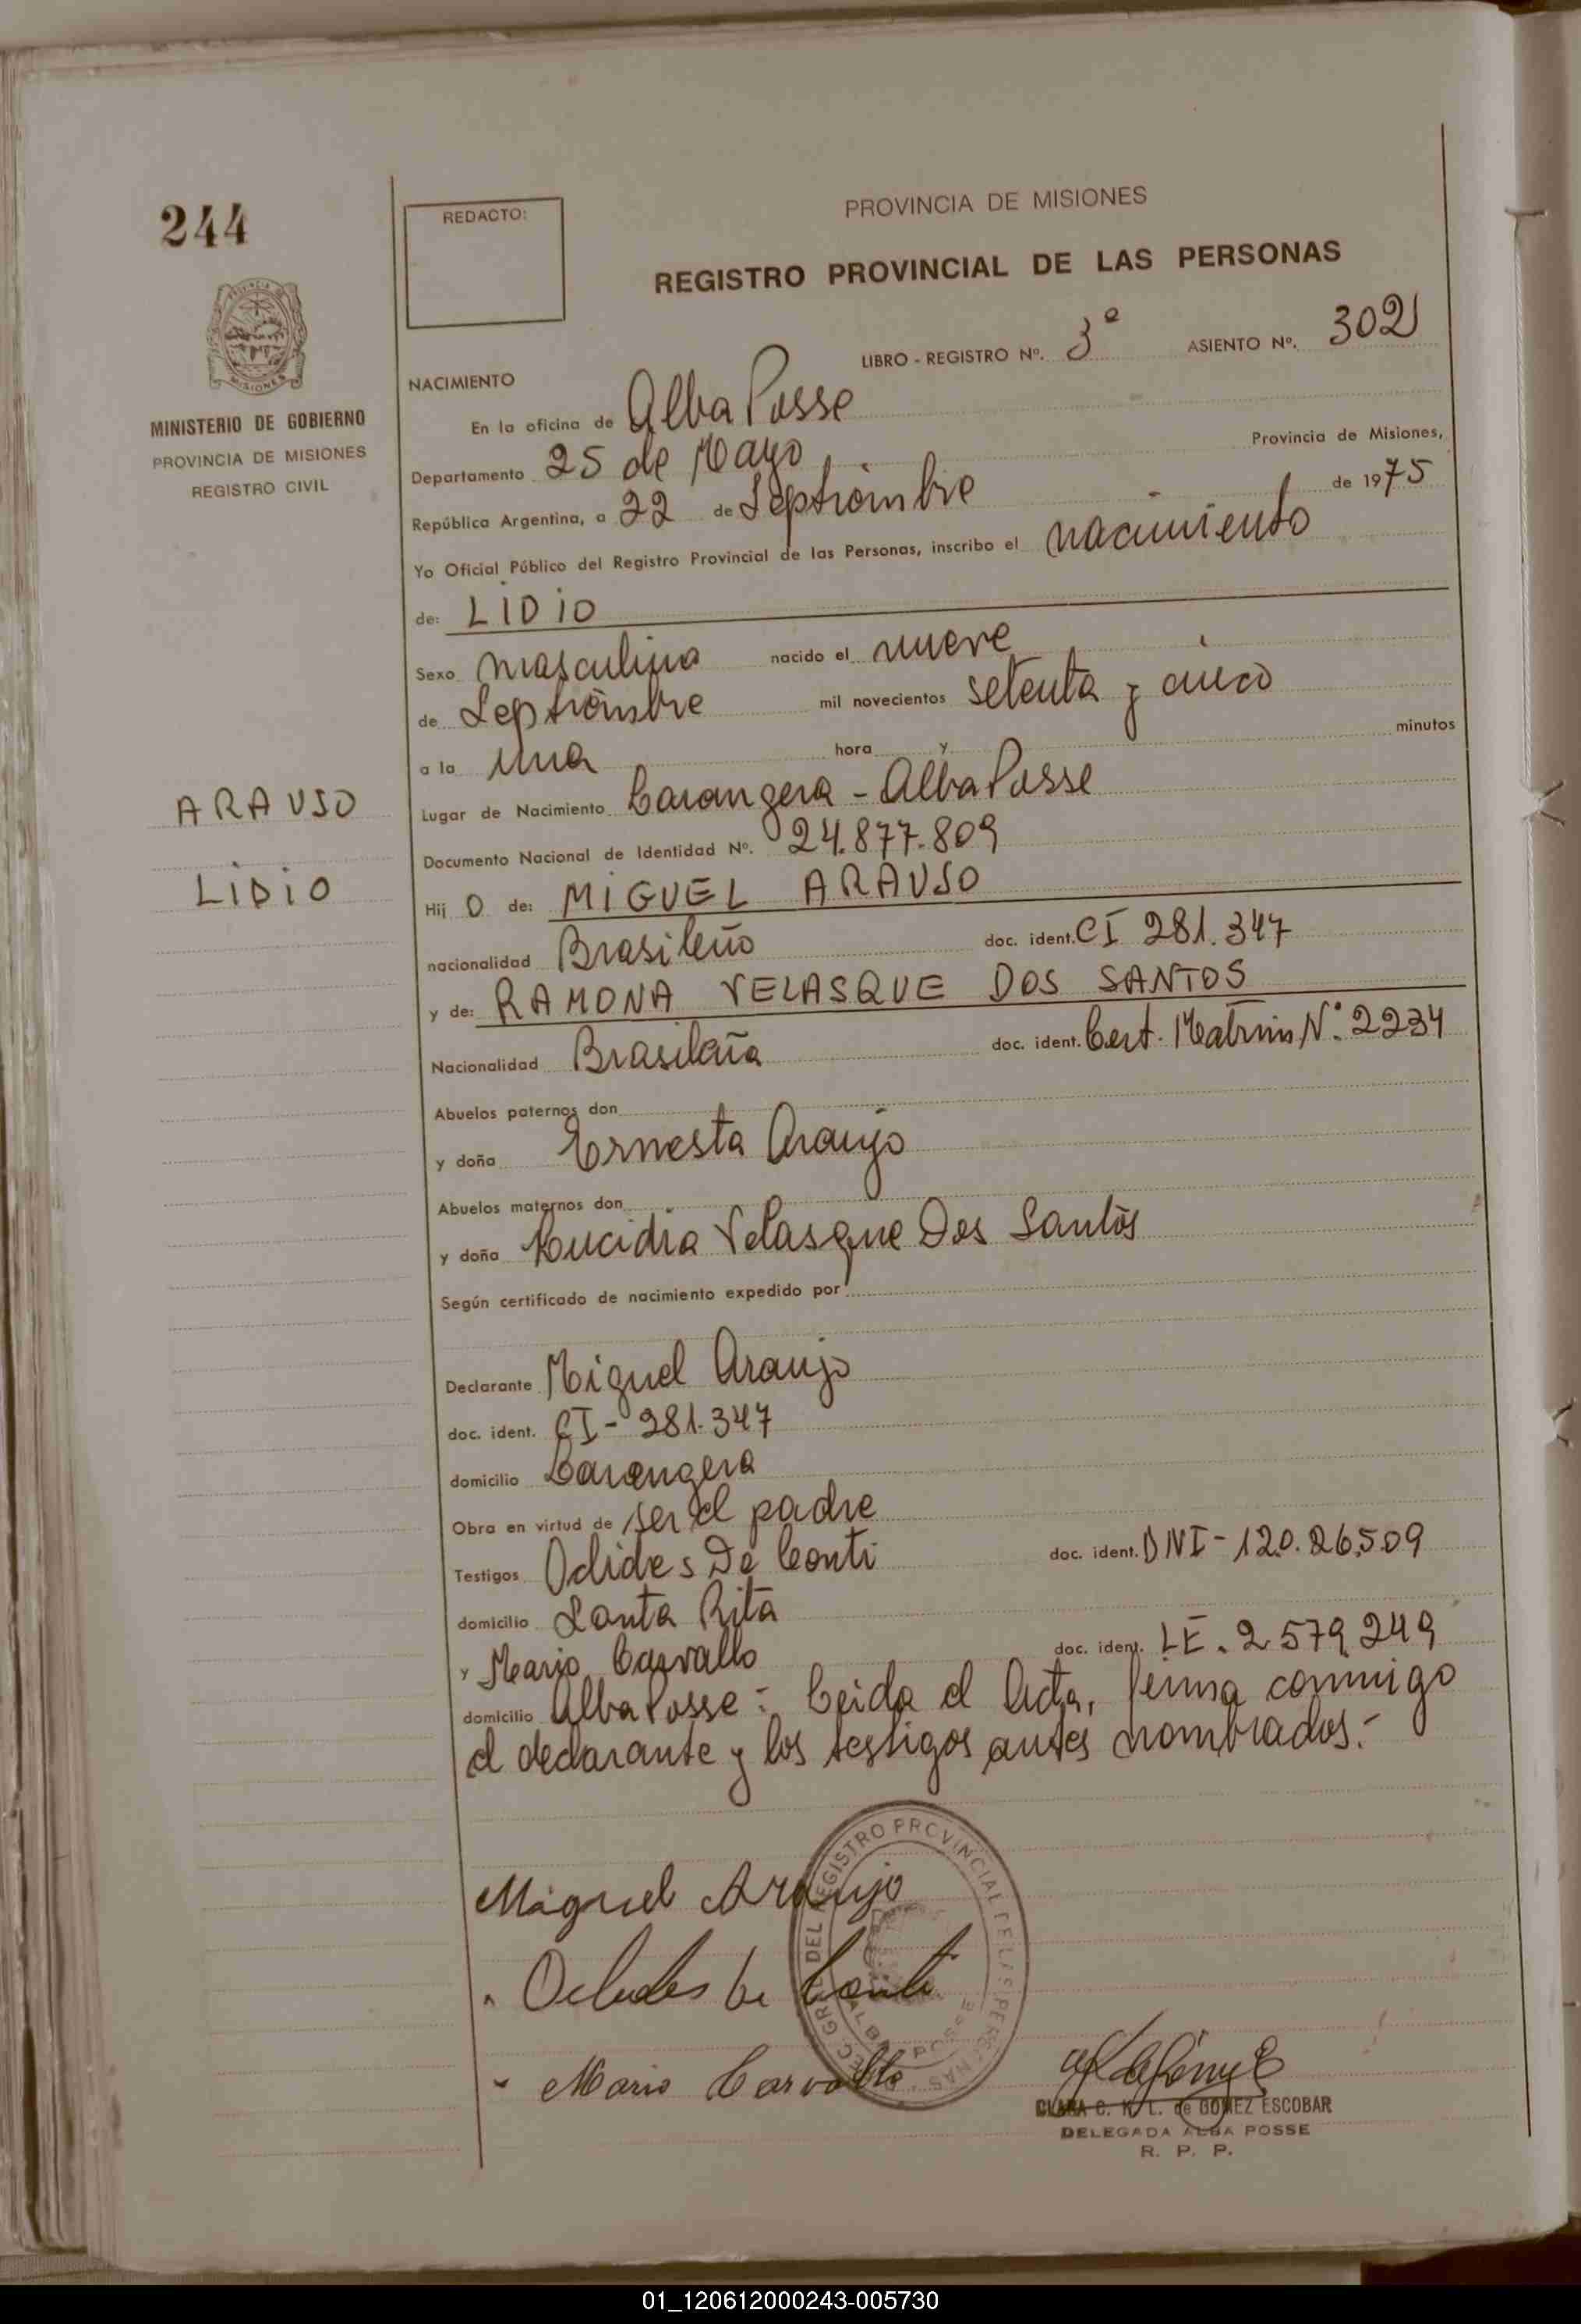 244
REDACTO:
PROVINCIA DE MISIONES
REGISTRO PROVINCIAL DE LAS PERSONAS
LIBRO - REGISTRO Nº. 3º ASIENTO Nº. 302
PROVINCIA DE
MISIONES
MINISTERIO DE GOBIERNO
PROVINCIA DE MISIONES
REGISTRO CIVIL
ARAUJO
LIDIO
NACIMIENTO
En la oficina de Alba Posse
Departamento 25 de Mayo Provincia de Misiones,
República Argentina, a 22 de Septiembre de 1975
Yo Oficial Público del Registro Provincial de las Personas, inscribo el nacimiento
de: LIDIO
Sexo masculino nacido el nueve
de Septiembre mil novecientos setenta y cinco
a la una hora y minutos
Lugar de Nacimiento Barangera - Alba Posse
Documento Nacional de Identidad Nº. 24.877.809
Hij O de: MIGUEL ARAUJO
nacionalidad Brasileño doc. ident. CI 281.347
y de: RAMONA VELASQUE DOS SANTOS
Nacionalidad Brasileña doc. ident. Cert. Matrim Nº 2234
Abuelos paternos don
y doña Ernesta Araujo
Abuelos maternos don
y doña Velasque Dos Santos
Según certificado de nacimiento expedido por
Declarante Miguel Araujo
doc. ident. CI - 281.347
domicilio Barangera
Obra en virtud de ser el padre
Testigos Oclides De Conti doc. ident. DNI - 120.26.509
domicilio Santa Rita
y Mario Carvallo doc. ident. LE. 2.579.249
domicilio Alba Posse - Leida el Acta, firma conmigo
el declarante y los testigos antes nombrados.-
Miguel Araujo
Oclides de Conti
Mario Carvallo
DEL REGISTRO PROVINCIAL DE LAS PERSONAS
ALBA POSSE
CLARA C. K. L. de GOMEZ ESCOBAR
DELEGADA ALBA POSSE
R. P. P.
01_120612000243-005730